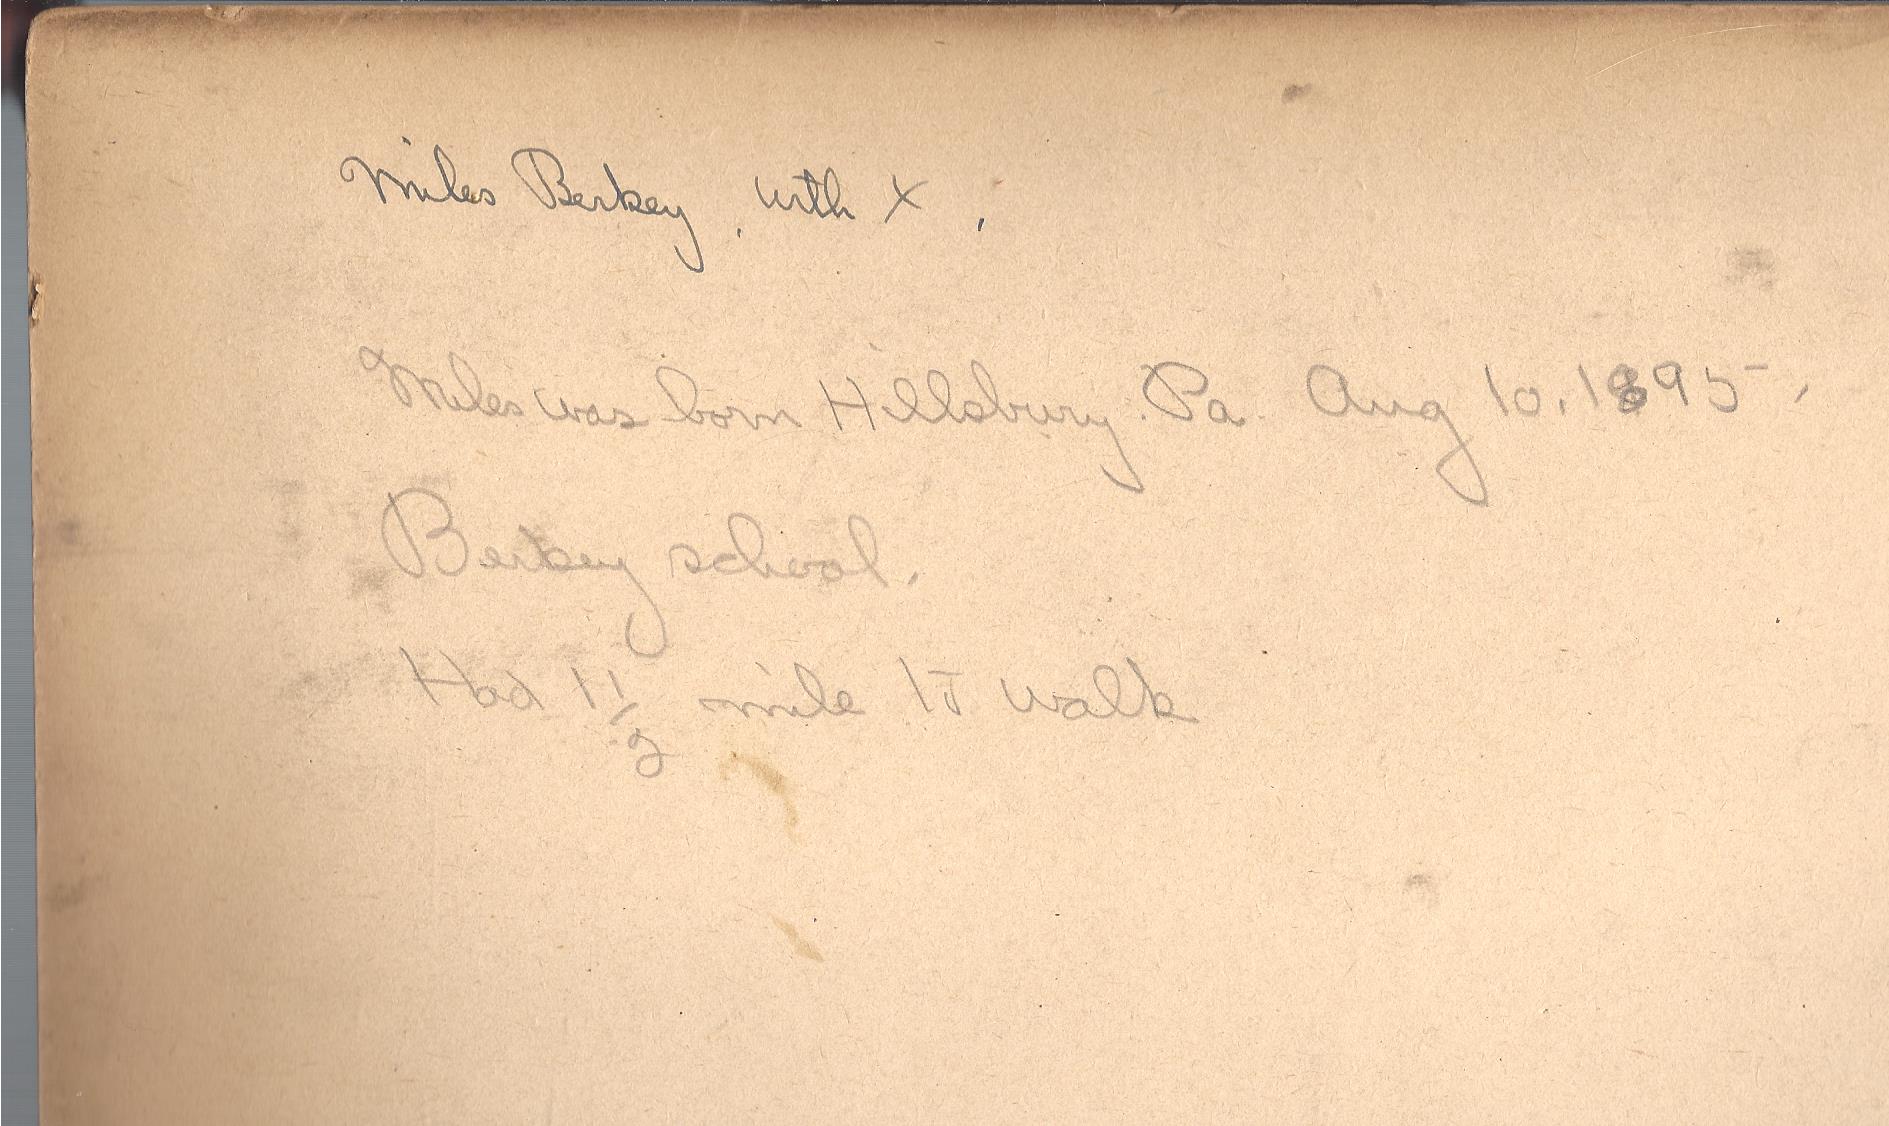 Miles Berkey, with X.
Miles was born Hillsbury. Pa. Aug 10, 1895.
Berkey school.
Had 1 1/2 mile to walk